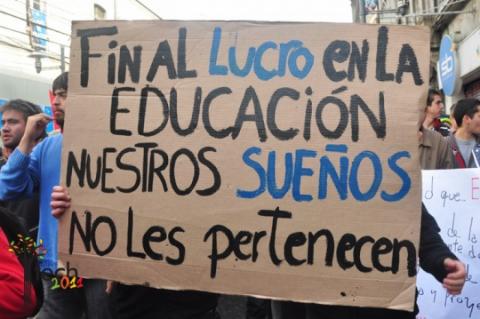 Final Lucro en la
Educación
Nuestros Sueños
No Les pertenecen
ech
2011